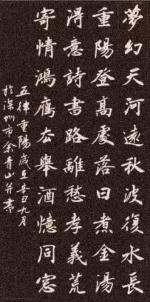 夢幻天河遠秋波復水長
重陽登高處落日煮金湯
得意詩書路離愁孝義荒
寄情鴻去舉酒憶同窓
五律重陽歲辛丑九月
於深圳市余青山并書